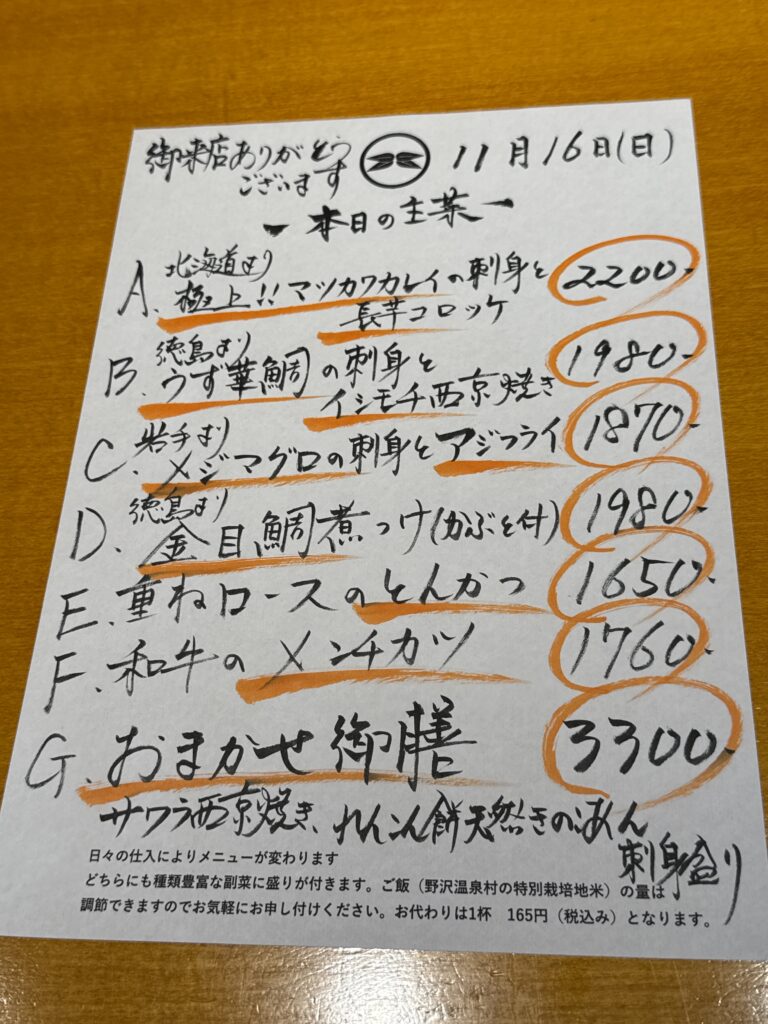 御来店ありがとう
ございます
11月16日(日)
ー本日の主菜ー
A. 北海道より
極上!!マツカワカレイの刺身と
長芋コロッケ
2200-
B. 徳島より
うず華鯛の刺身と
イシモチ西京焼き
1980-
C. 岩手より
メジマグロの刺身とアジフライ
1870-
D. 徳島より
金目鯛煮つけ(かぶと付)
1980-
E. 重ねロースのとんかつ
1650-
F. 和牛のメンチカツ
1760-
G. おまかせ御膳
3300-
サワラ西京焼き、れんこん餅天然きのこあん
刺身盛り
日々の仕入によりメニューが変わります
どちらにも種類豊富な副菜に盛りが付きます。ご飯（野沢温泉村の特別栽培地米）の量は
調節できますのでお気軽にお申し付けください。お代わりは1杯　165円（税込み）となります。